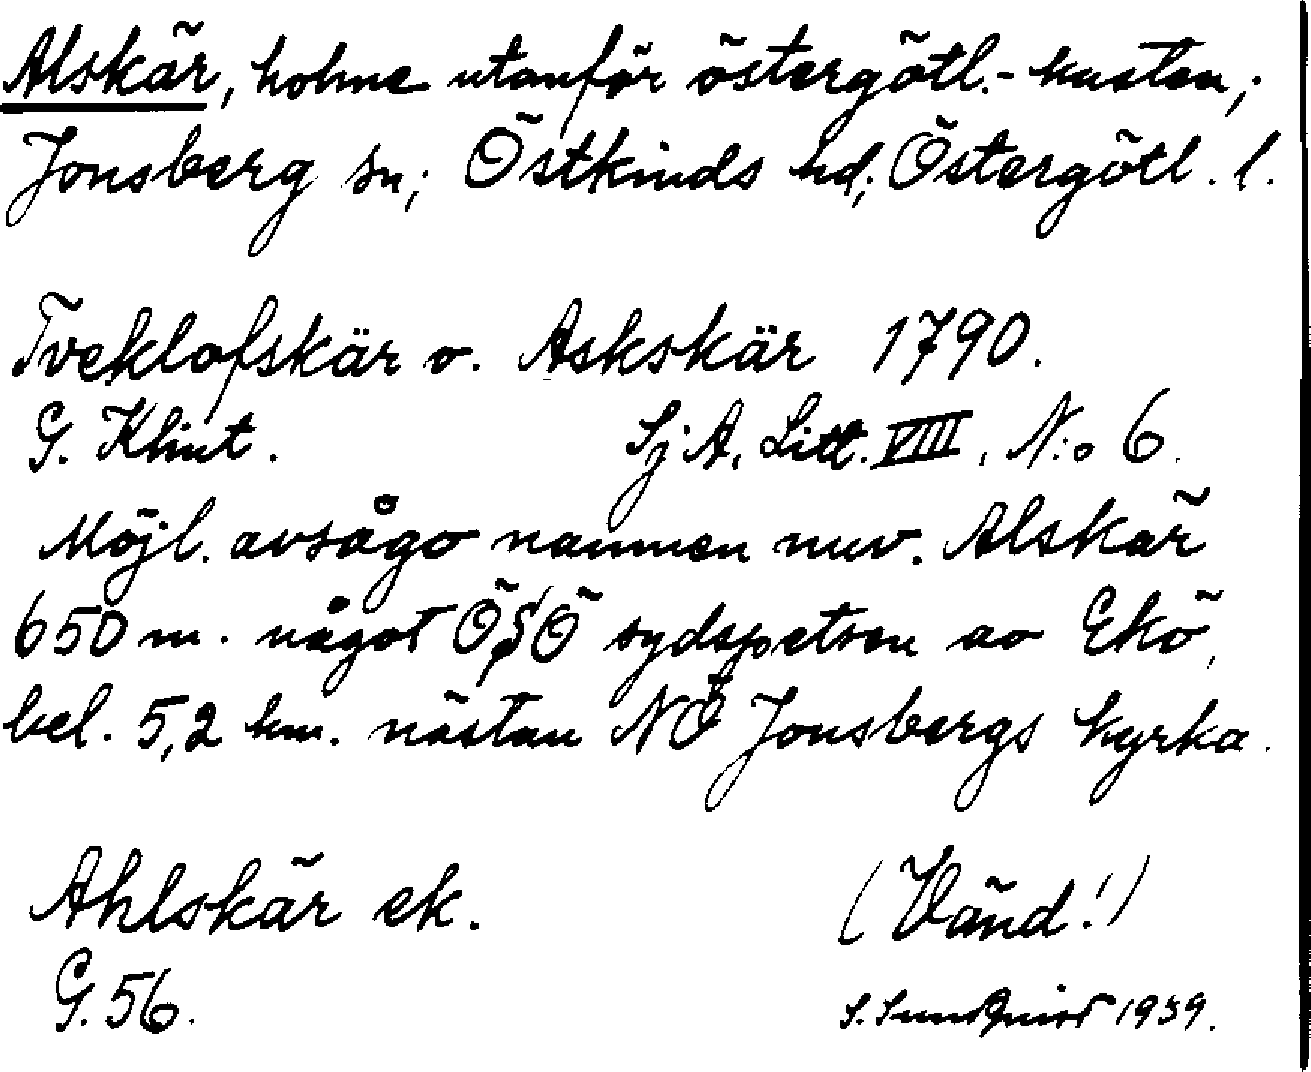 Alskär, holme utanför östergötl.-kusten;
Jonsberg sn; Östkinds hd; Östergötl. l.
Tveklofskär v. Askskär 1790.
G. Klint. SjA, Litt. VIII, N:o 6.
Möjl. avsågo namnen nuv. Alskär
650 m. något ÖSÖ sydspetsen av Ekö,
bel. 5,2 km. nästan NO Jonsbergs kyrka.
Ahlskär ek. (Vänd!)
G. 56. S. Sundqvist 1939.